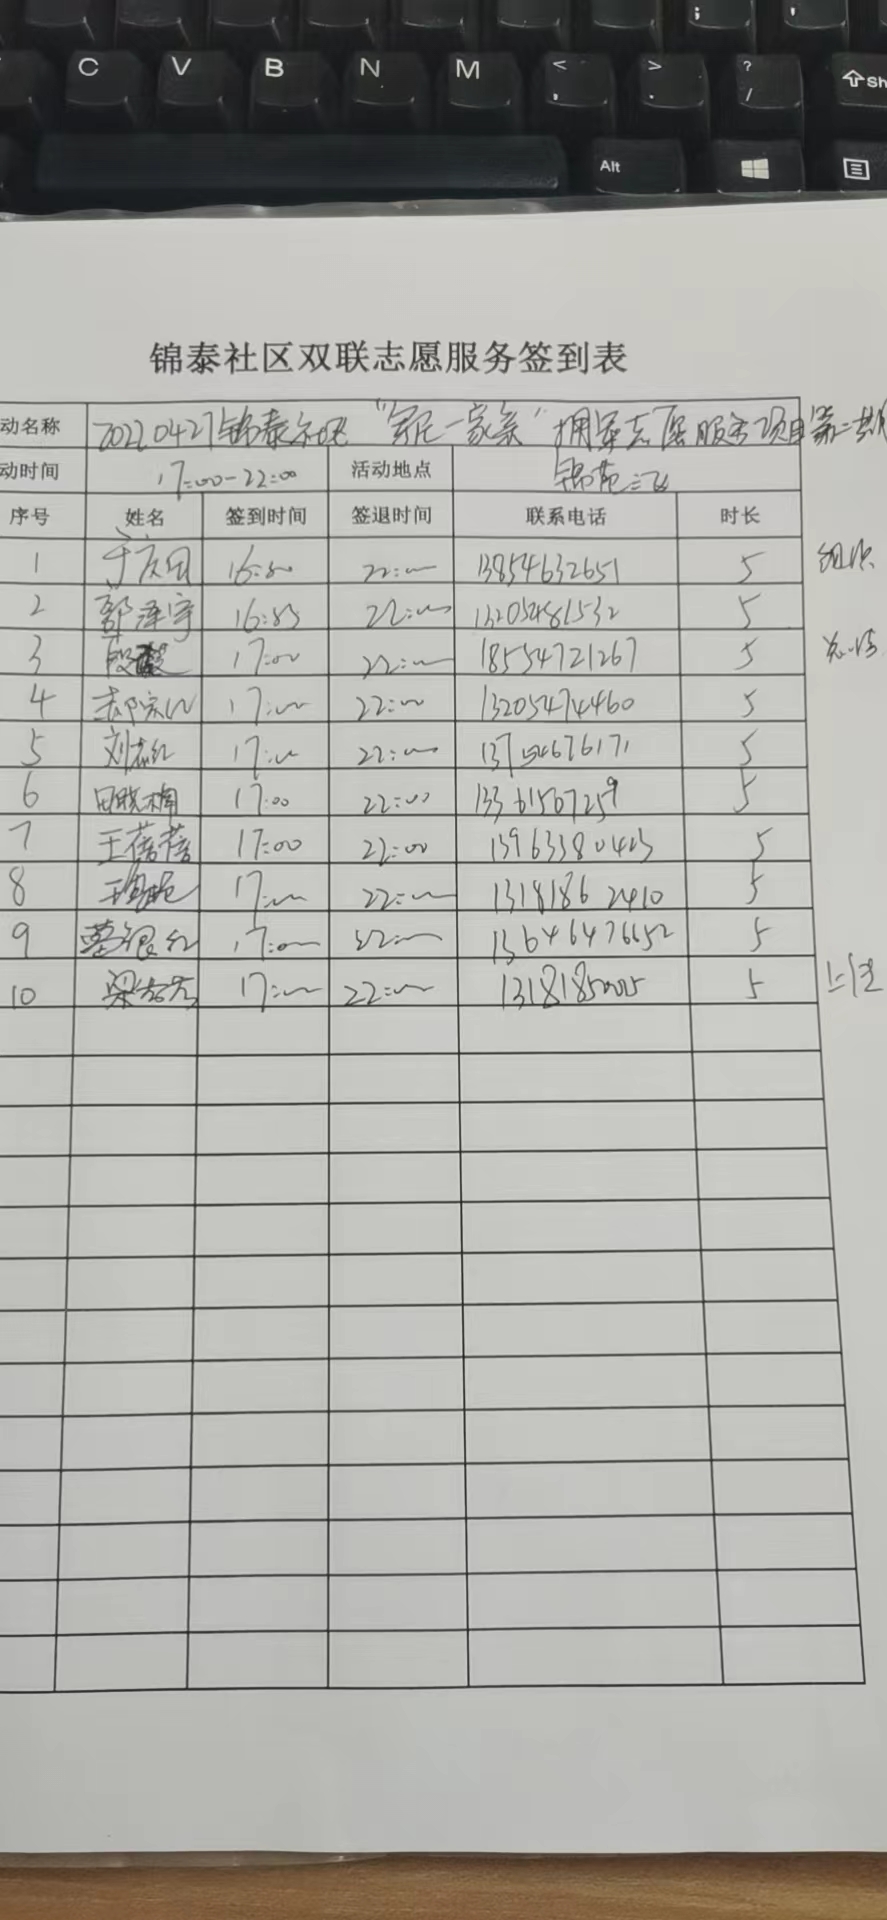 C V B N M < , > . ? / Sh
Alt
锦泰社区双联志愿服务签到表
动名称 20220427锦泰社区“军民一家亲”拥军志愿服务项目第二期
动时间 17:00-22:00 活动地点 锦苑三区
序号 姓名 签到时间 签退时间 联系电话 时长
1 于庆国 22:00 13854632651 5 组织
2 郭泽宇 22:00 13205481532 5
3 段 17:00 22:00 18554721267 5 总结
4 17:00 22:00 13205474460 5
5 刘志红 17:00 22:00 13754676171 5
6 田晓楠 17:00 22:00 13361567259 5
7 王蓓蓓 17:00 22:00 13963380403 5
8 17:00 22:00 13181862410 5
9 17:00 22:00 13646476652 5
10 梁 17:00 22:00 5